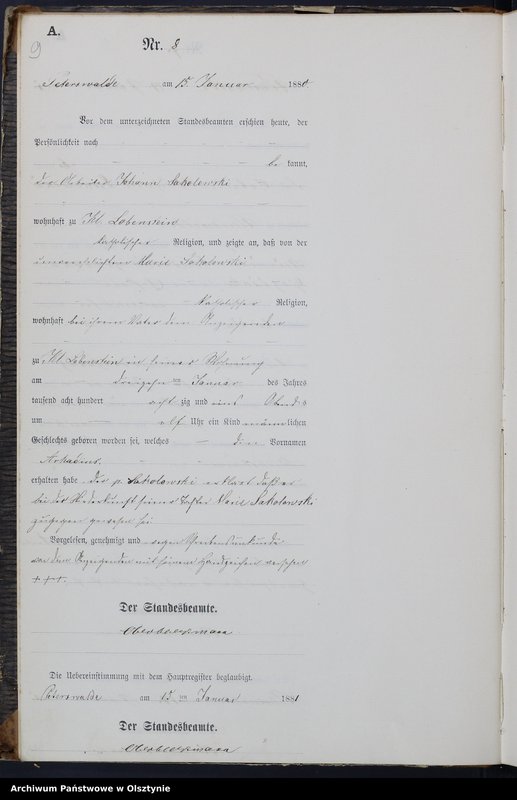 A.
9
Nr. 8
Peterswalde am 15. Januar 1881.
Vor dem unterzeichneten Standesbeamten erschien heute, der
Persönlichkeit nach
be kannt,
der Arbeiter Johann Sakolowski
wohnhaft zu Kl. Lobenstein
katholischer Religion, und zeigte an, daß von der
unverehelichten Marie Sakolowski
katholischer Religion,
wohnhaft bei ihrem Vater dem Anzeigenden
zu Kl. Lobenstein in seiner Wohnung
am dreizehnten Januar des Jahres
tausend acht hundert acht zig und eins Abends
um elf Uhr ein Kind männlichen
Geschlechts geboren worden sei, welches den Vornamen
erhalten habe. Der p. Sakolowski erklärt daß er
bei der Niederkunft seiner Tochter Marie Sakolowski
zugegen gewesen sei
Vorgelesen, genehmigt und wegen Schreibensunkunde
von dem Anzeigenden mit seinem Handzeichen versehen
+++.
Der Standesbeamte.
Die Uebereinstimmung mit dem Hauptregister beglaubigt.
Peterswalde am 15 ten Januar 1881
Der Standesbeamte.
Archiwum Państwowe w Olsztynie